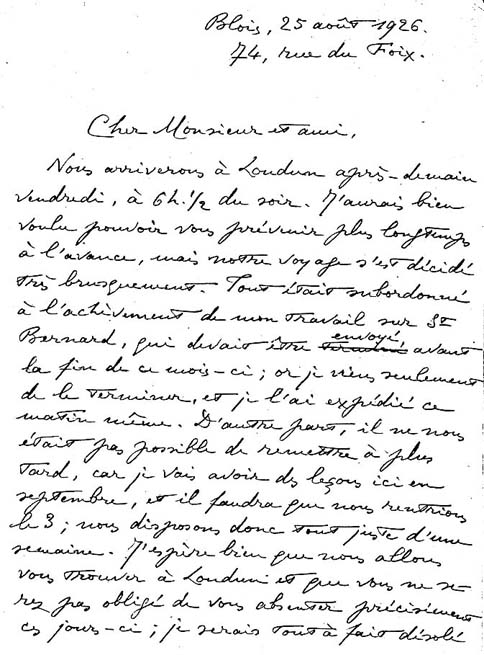 Blois, 25 août 1926.
74, rue du Foix.
Cher Monsieur et ami,
Nous arriverons à Loudun après-demain
vendredi, à 6h.1/2 du soir. J'aurais bien
voulu pouvoir vous prévenir plus longtemps
à l'avance, mais notre voyage s'est décidé
très brusquement. Tout était subordonné
à l'achèvement de mon travail sur St
Bernard, qui devait être terminé envoyé, avant
la fin de ce mois-ci ; or je viens seulement
de le terminer, et je l'ai expédié ce
matin même. D'autre part, il ne nous
était pas possible de remettre à plus
tard, car je vais avoir des leçons ici en
septembre, et il faudra que nous rentrions
le 3 ; nous disposons donc tout juste d'une
semaine. J'espère bien que nous allons
vous trouver à Loudun et que vous ne se-
rez pas obligé de vous absenter précisément
ces jours-ci ; je serais tout à fait désolé